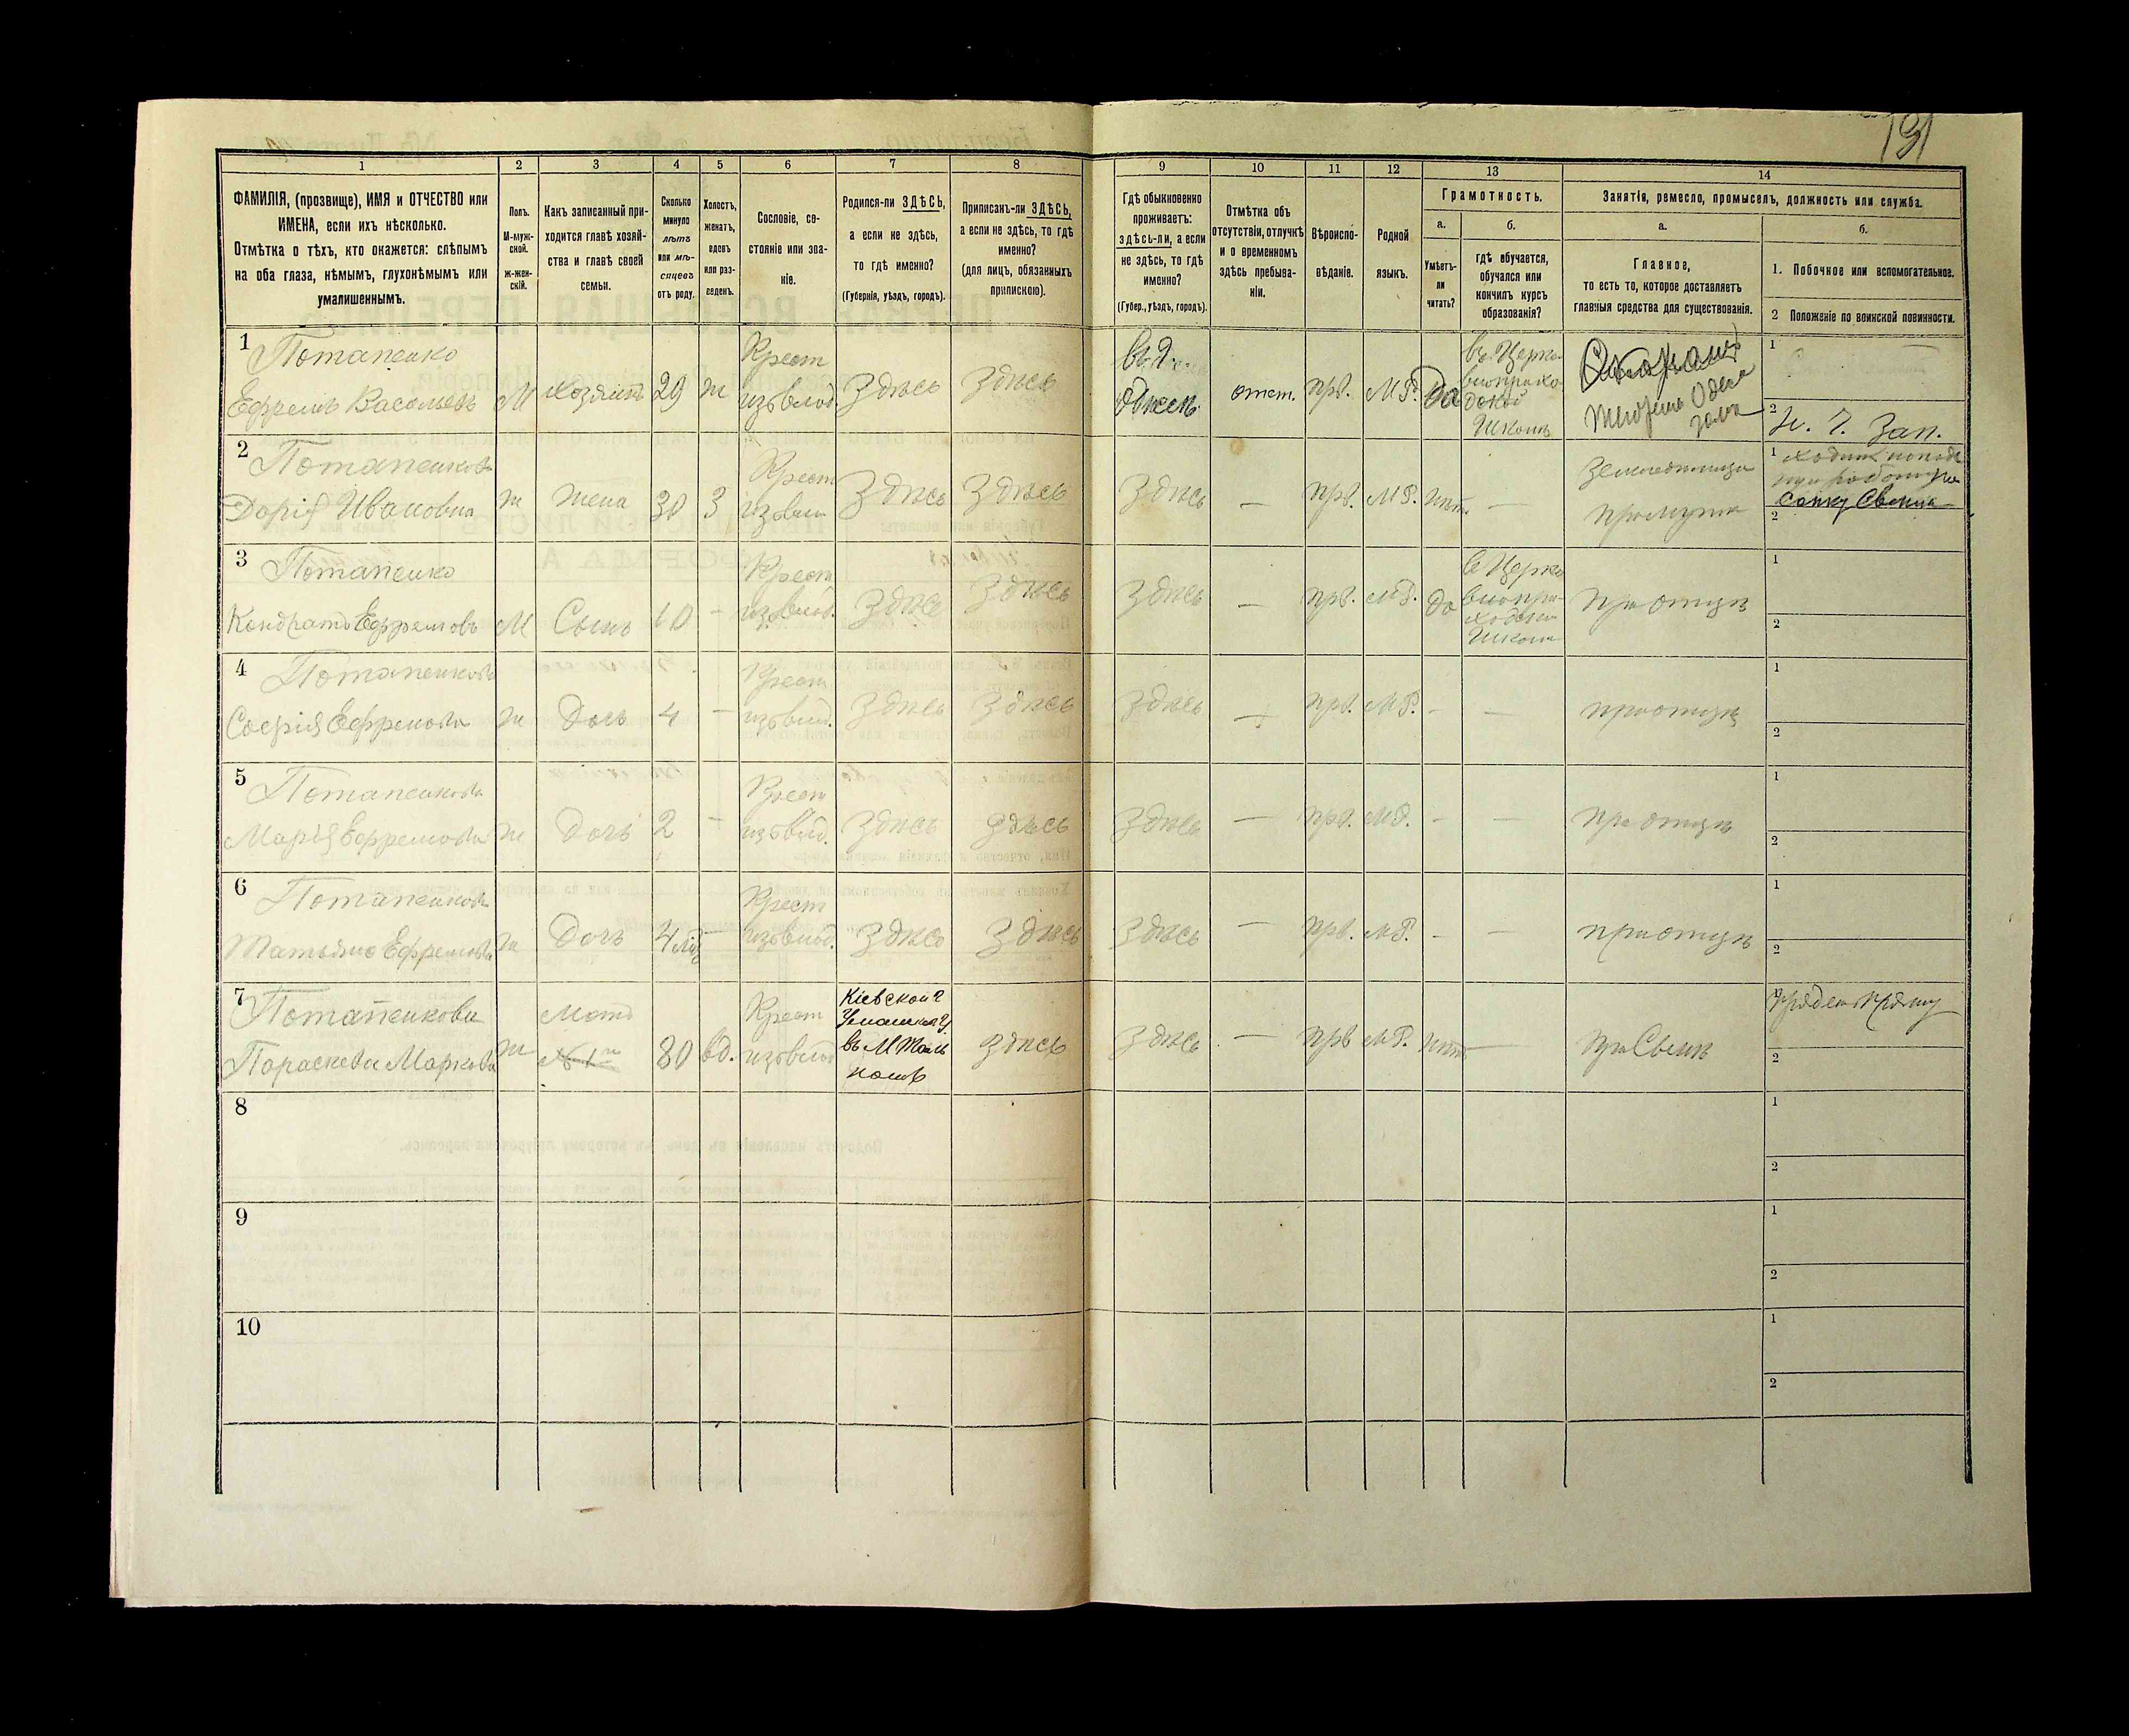 131
1
2
3
4
5
6
7
8
9
10
11
12
13
14
ФАМИЛІЯ, (прозвище), ИМЯ и ОТЧЕСТВО или
ИМЕНА, если ихъ нѣсколько.
Отмѣтка о тѣхъ, кто окажется: слѣпымъ
на оба глаза, нѣмымъ, глухонѣмымъ или
умалишеннымъ.
Полъ.
М-муж-
ской.
ж-жен-
скій.
Какъ записанный при-
ходится главѣ хозяй-
ства и главѣ своей
семьи.
Сколько
минуло
лѣтъ
или мѣ-
сяцевъ
отъ роду.
Холостъ,
женатъ,
вдовъ
или раз-
веденъ.
Сословіе, со-
стояніе или зва-
ніе.
Родился-ли ЗДѢСЬ,
а если не здѣсь,
то гдѣ именно?
(Губернія, уѣздъ, городъ).
Приписанъ-ли ЗДѢСЬ,
а если не здѣсь, то гдѣ
именно?
(для лицъ, обязанныхъ
припискою).
Гдѣ обыкновенно
проживаетъ:
здѣсь-ли, а если
не здѣсь, то гдѣ
именно?
(Губер., уѣздъ, городъ).
Отмѣтка объ
отсутствіи, отлучкѣ
и о временномъ
здѣсь пребыва-
ніи.
Вѣроиспо-
вѣданіе.
Родной
языкъ.
Грамотность.
а.
Умѣетъ-
ли
читать?
б.
гдѣ обучается,
обучался или
кончилъ курсъ
образованія?
Занятія, ремесло, промыселъ, должность или служба.
а.
Главное,
то есть то, которое доставляетъ
главныя средства для существованія.
б.
1. Побочное или вспомогательное.
2 Положеніе по воинской повинности.
1
Потапенко
Ефремъ Васильевъ
М
хозяинъ
29
ж
Крест
изъ влад.
Здѣсь
Здѣсь
отст.
прв.
М.Р.
Да
въ Церко-
вноприхо-
дской
Школѣ
1
2
Н. Ч. Зап.
2
Потапенкова
Дарія Ивановна
ж
жена
30
З
Крест
изъ влад
Здѣсь
Здѣсь
Здѣсь
—
прв.
М.Р.
нѣт.
—
при мужѣ
1
2
3
Потапенко
Кондратъ Ефремовъ
М
Сынъ
10
-
Крест
изъ влад.
Здѣсь
Здѣсь
Здѣсь
—
прв.
М.Р.
да
в Церко
внопри-
ходской
Школѣ
при отцѣ
1
2
4
Потапенкова
Софія Ефремова
ж
Дочь
4
-
Крест
изъ влад.
Здѣсь
Здѣсь
Здѣсь
—
прв.
М.Р.
-
—
при отцѣ
1
2
5
Потапенкова
Марія Ефремова
ж
Дочь
2
-
Крест
изъ влад.
Здѣсь
Здѣсь
Здѣсь
—
прв.
М.Р.
-
—
при отцѣ
1
2
6
Потапенкова
Татьяна Ефремова
ж
Дочь
4
—
Крест
изъ влад.
Здѣсь
Здѣсь
Здѣсь
—
прв.
М.Р.
-
—
при отцѣ
1
2
7
Потапенкова
Параскева Маркова
ж
Мать
№ 1
80
вд.
Крест
изъ влад
Кіевской г
Уманска У.
въ М Таль
Здѣсь
Здѣсь
—
прв
М.Р.
нѣт.
—
при Сынѣ
1
Прядетъ Пряжу
2
8
1
2
9
1
2
10
1
2